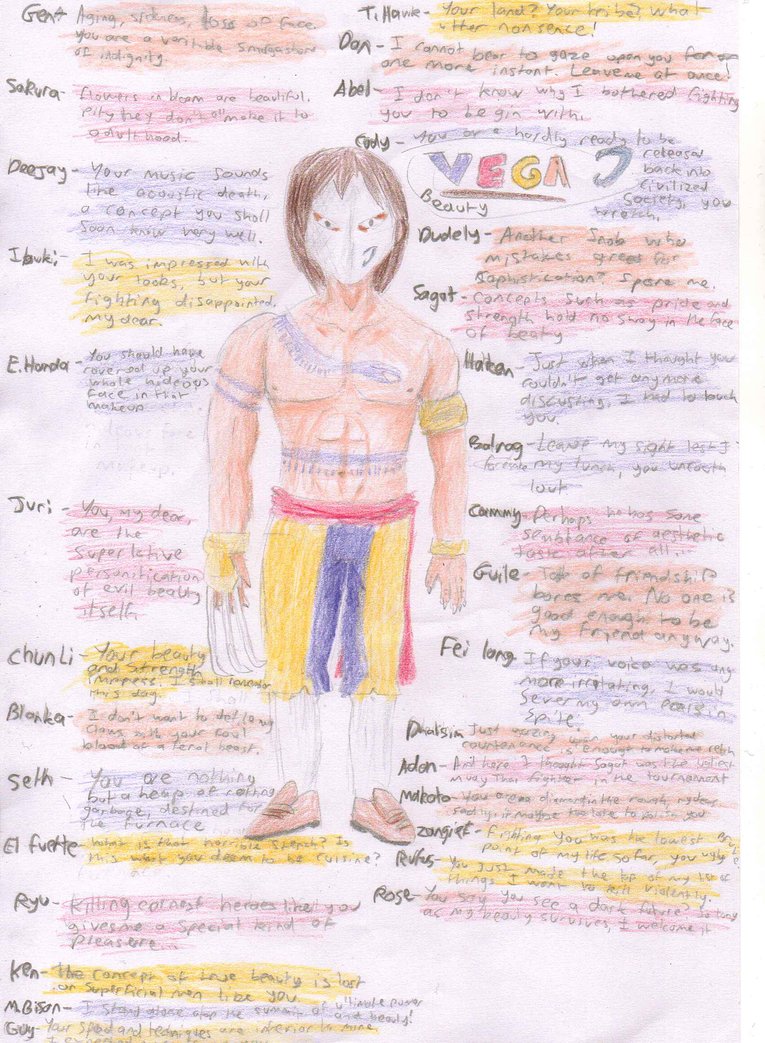 Gen- Aging, sickness, loss of face.
you are a veritible smogasbord
of indignity.
Sakura- flowers in bloom are beautiful.
Pity they don't all make it to
adulthood.
Deejay- Your music sounds
like acoustic death,
a concept you shall
soon know very well.
Ibuki- I was impressed with
your looks, but your
fighting disappointed,
my dear.
E.Honda- You should have
covered up your
whole hideous
face in that
makeup
Juri- You, my dear,
are the
superlative
personification
of evil beauty
itself.
Chun Li- Your beauty
and strength
impress. I shall remember
this day.
Blanka- I don't want to defile my
claws with your foul
blood of a feral beast.
Seth- You are nothing
but a heap of rotting
garbage, destined for
the furnace
El Fuerte- What is that horrible stench? Is
this what you deem to be cuisine?
Ryu- Killing earnest heroes like you
gives me a special kind of
pleasure...
Ken- The concept of true beauty is lost
on superficial men like you.
M.Bison- I stand alone atop the summit of ultimate power
and beauty!
Guy- Your speed and techniques are inferior to mine
T. Hawk- Your land? Your tribe? What
utter nonsence!
Dan- I cannot bear to gaze upon you for
one more instant. Leave me at once!
Abel- I don't know why I bothered fighting
you to begin with.
Cody- You are hardly ready to be
released
back into
civilized
society, you
wretch.
VEGA
Beauty
Dudely- Another snob who
mistakes greed for
sophistication? Spare me.
Sagat- Concepts such as pride and
strength hold no sway in the face
of beauty
Hakan- Just when I thought you
couldn't get anymore
discusting, I had to touch
you.
Balrog- Leave my sight lest I
my lunch, you uncouth
lout
Cammy- Perhaps he has some
semblance of aesthetic
taste after all...
Guile- Talk of friendship
bores me. No one is
good enough to be
my friend anyway.
Fei long If your voice was any
more irritating, I would
sever my own ears in
spite.
Dhalsim Just gazing upon your distorted
countenance is enough to make me retch
Adon- And here I thought Sagat was the ugliest
muay Thai fighter in the tournament
Makoto- You are a diamond in the rough, my dear
sadly, it may be too late to polish you
Zangief- Fighting you was the lowest
point of my life so far, you ugly
Rufus- You just made the top of my list of
things I want to kill violently.
Rose- You say you see a dark future? So long
as my beauty survives, I welcome it